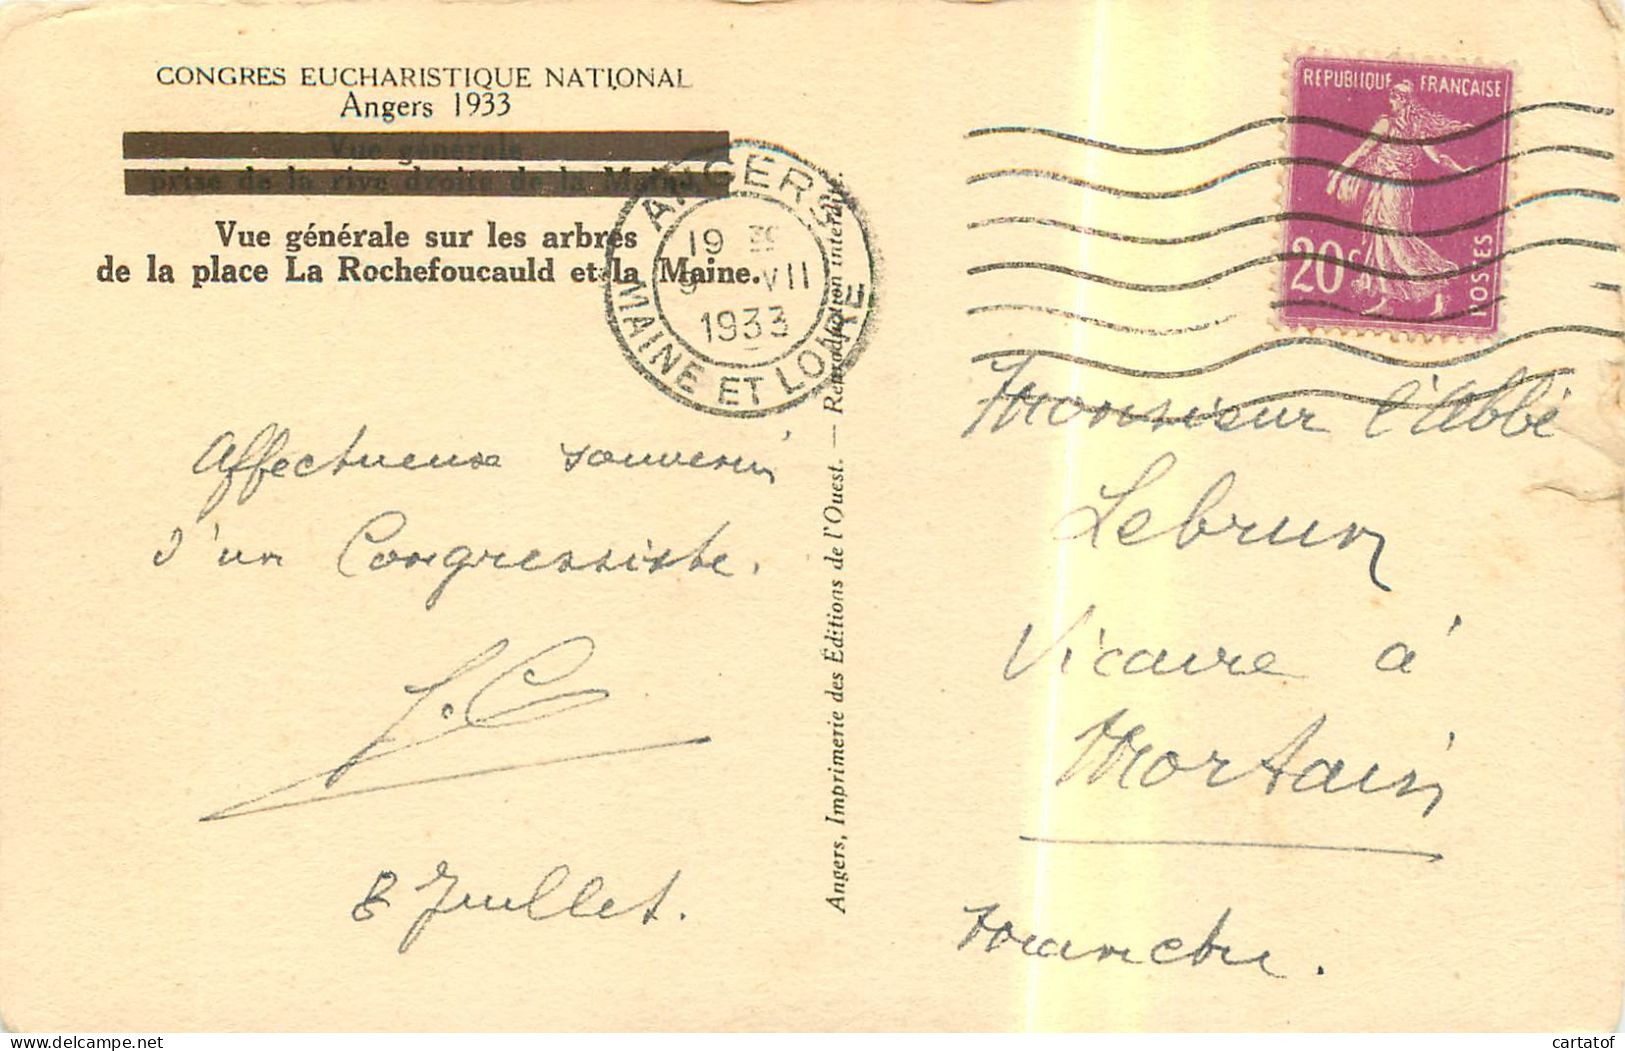 CONGRES EUCHARISTIQUE NATIONAL
Angers 1933
Vue générale
prise de la rive droite de la Maine.
Vue générale sur les arbres
de la place La Rochefoucauld et la Maine.
ANGERS
19 30
9 VII
1933
MAINE ET LOIRE
REPUBLIQUE FRANÇAISE
20 c
POSTES
Affectueux souvenir
d'un Congressiste.
J.C
8 Juillet.
Angers, Imprimerie des Editions de l'Ouest. — Reproduction interdite.
Monsieur l'Abbé
Lebrun
Vicaire à
Mortain
Manche.
cartatof